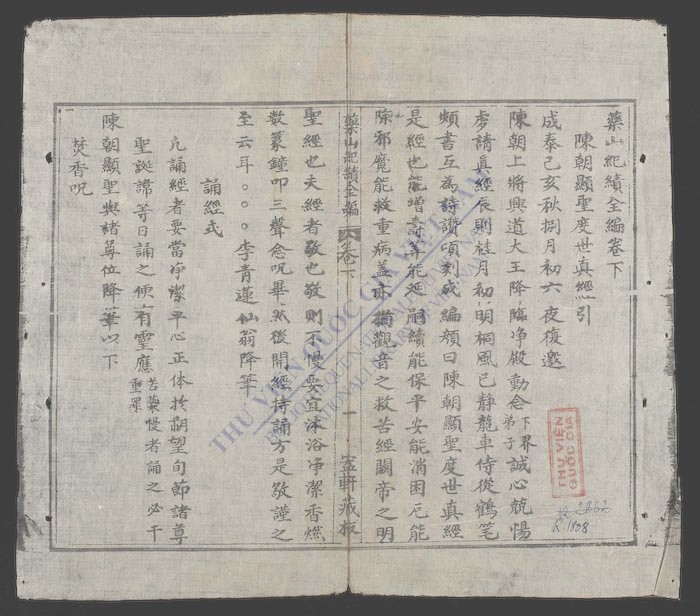 藥山紀績全編卷下
陳朝顯聖度世真經引
成泰己亥秋捌月初六夜復邀
陳朝上將興道大王降臨净殿動念下界弟子誠心兢惕
虔請真經辰則桂月初明桐風已静龍車侍從鶴笔
頻書互為詩讚頃刻成編顏曰陳朝顯聖度世真經
是經也能增壽算能延嗣續能保平安能消困厄能
除邪魔能救重病盖亦猶觀音之救苦經關帝之明
藥山紀績全編 卷下 一 善軒藏板
聖經也夫經者敬也敬則不慢要宜沐浴净潔香燃
数篆鐘叩三聲念呪畢然後開經持誦方是敬謹之
至云耳○○○李青蓮仙翁降筆
誦經式
凢誦經者要當净潔平心正体扵朔望旬節諸尊
聖誕諦等日誦之便有靈應若䙝慢者誦之必干重罪
陳朝顯聖與諸尊位降筆以下
焚香呪
THƯ VIỆN QUỐC GIA VIỆT NAM
NATIONAL LIBRARY OF VIETNAM
THƯ VIỆN
QUỐC GIA
R.1938